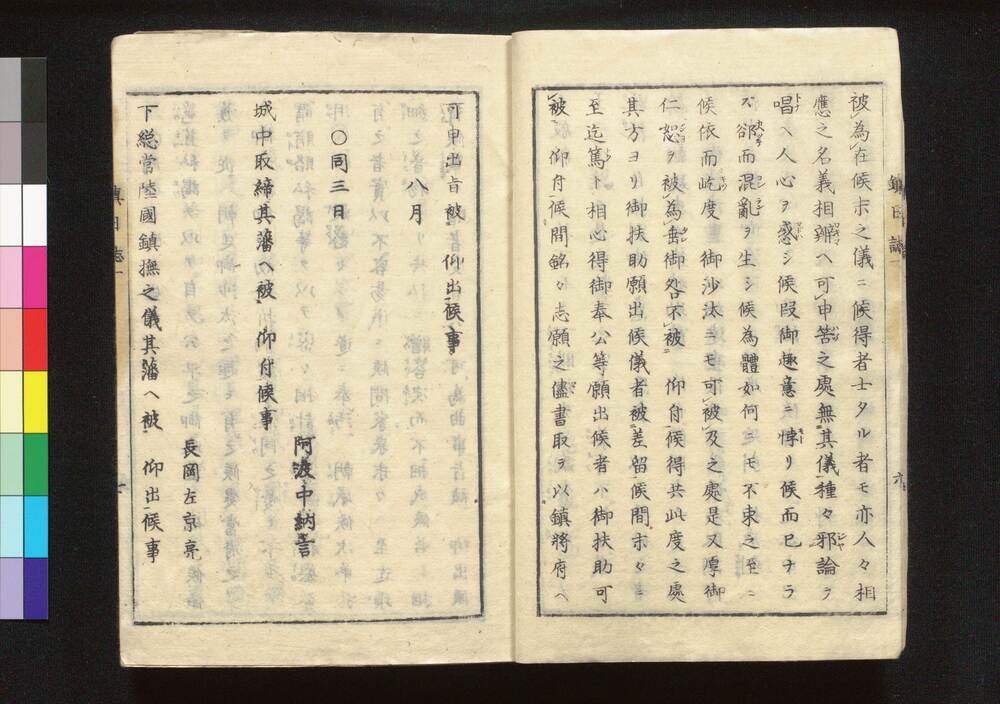 被為在候末之儀ニ候得者士タル者モ亦人々相
應之名義相辨ヘ可申筈之處無其儀種々邪論ヲ
唱ヘ人心ヲ惑シ候段御趣意ニ悖リ候而已ナラ
ズ欲而混亂ヲ生シ候為體如何ニモ不束之至ニ
候依而屹度御沙汰ニモ可被及之處是又厚御
仁恕ヲ被為垂御咎不被 仰付候得共此度之處
其方ヨリ御扶助願出候儀者被差留候間末々ニ
至迄篤ト相心得御奉公等願出候者ハ御扶助可
被 仰付候間銘々志願之儘書取ヲ以鎮將府ヘ
鎮日誌一
六
可申出旨被 仰出候事
八月
○同三日
城中取締其藩ヘ被 仰付候事
阿波中納言
長岡左京亮
下總常陸國鎮撫之儀其藩ヘ被 仰出候事